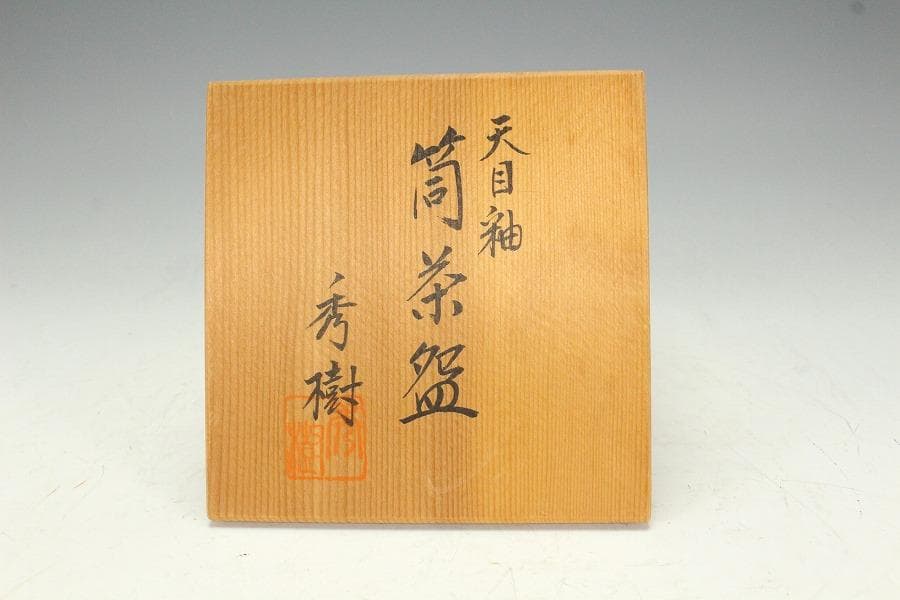 天目釉
筒茶盌
秀樹